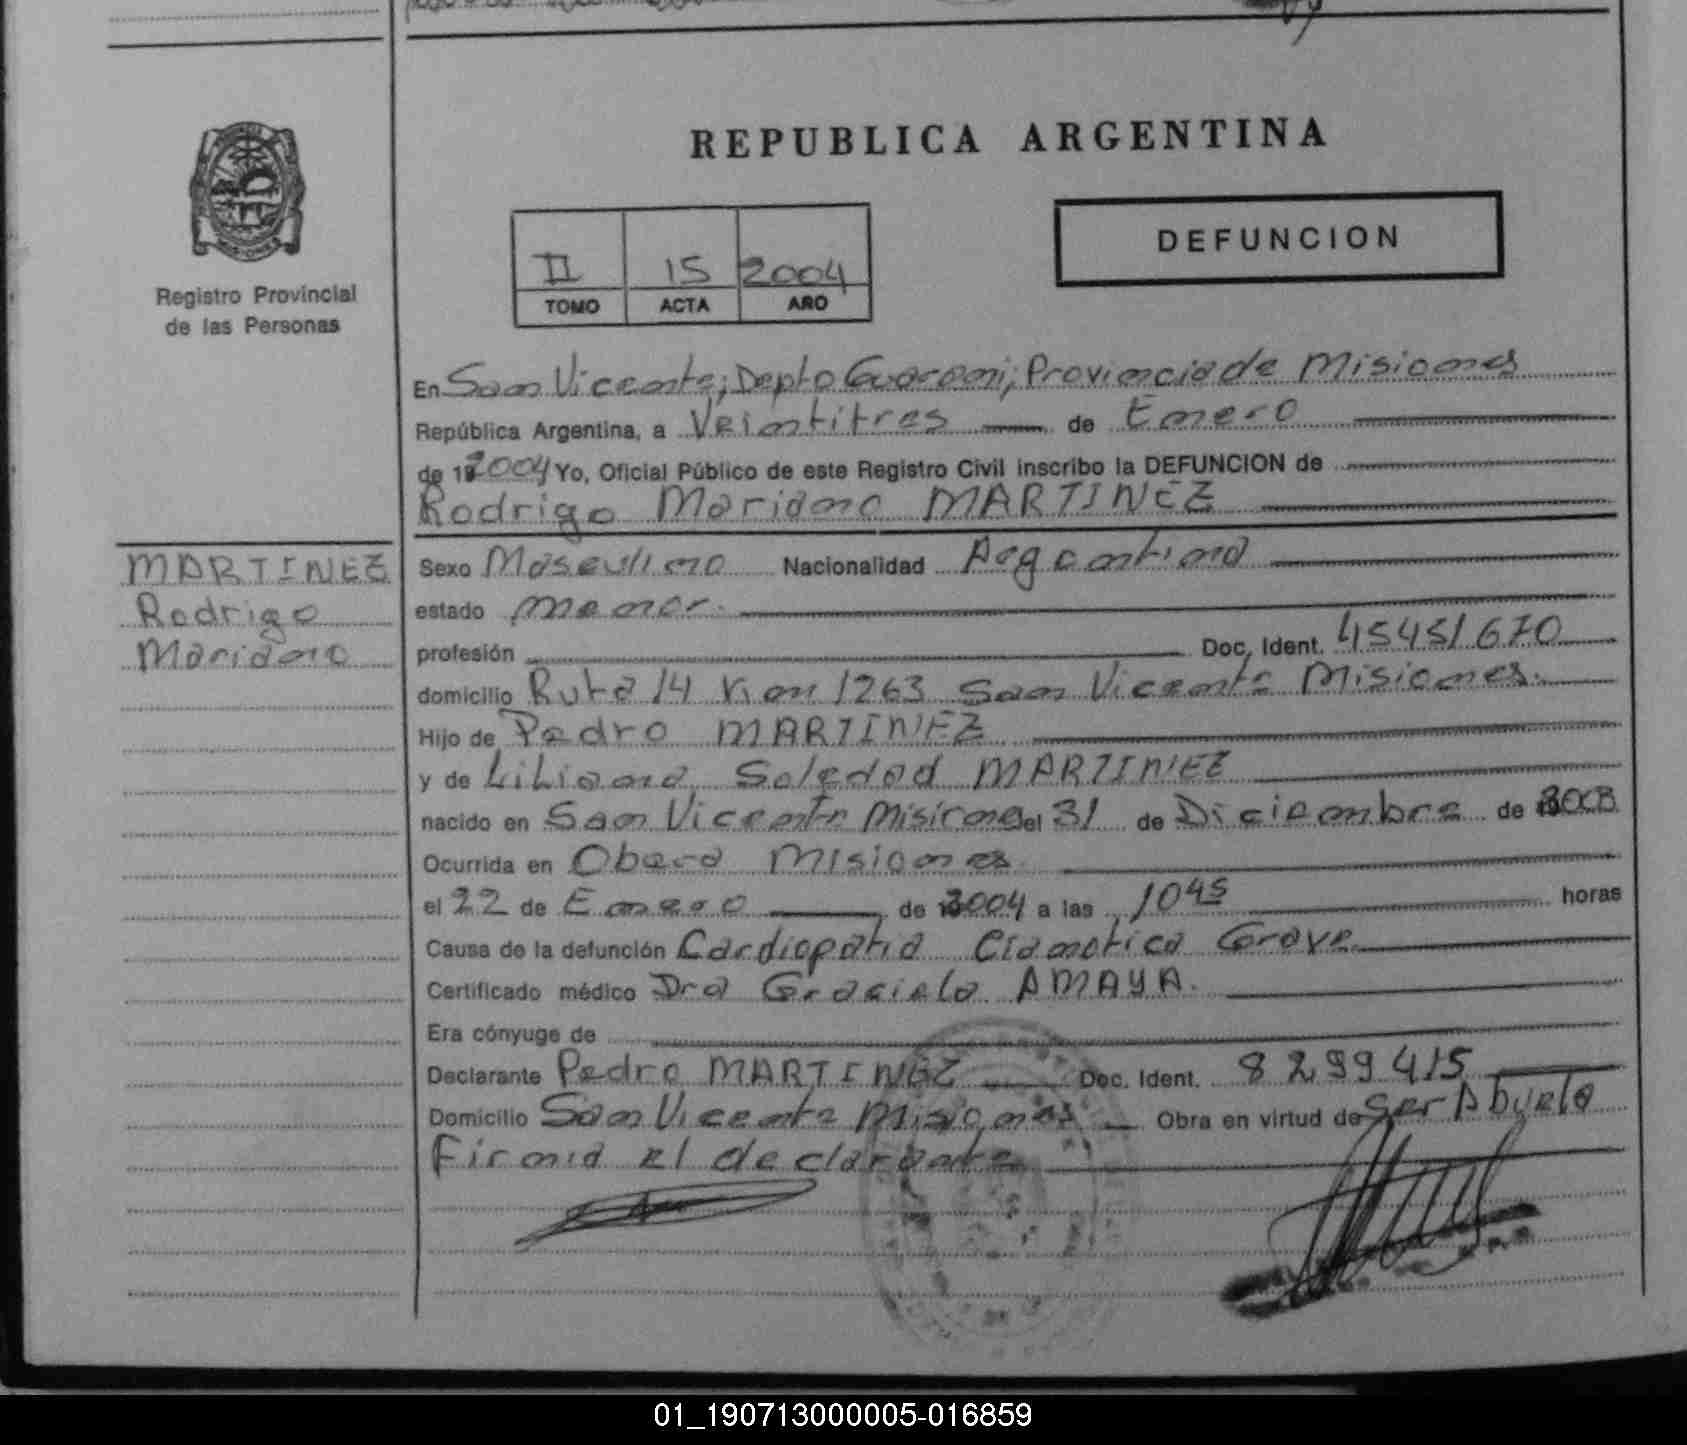 REPUBLICA ARGENTINA
DEFUNCION
II 15 2004
TOMO ACTA AÑO
Registro Provincial
de las Personas
En San Vicente; Depto Guarani; Provincia de Misiones
República Argentina, a Veintitres de Enero
de 192004 Yo, Oficial Público de este Registro Civil inscribo la DEFUNCION de
Rodrigo Mariano MARTINEZ
MARTINEZ
Rodrigo
Mariano
Sexo Masculino Nacionalidad Argentina
estado menor.
profesión Doc. Ident. 45451670
domicilio Ruta 14 Km 1263 San Vicente Misiones.
Hijo de Pedro MARTINEZ
y de Liliana Soledad MARTINEZ
nacido en San Vicente Misiones el 31 de Diciembre de 2003
Ocurrida en Obera Misiones
el 22 de Enero de 2004 a las 10 45 horas
Causa de la defunción Cardiopatia Cianotica Grave
Certificado médico Dra Graciela AMAYA.
Era cónyuge de
Declarante Pedro MARTINEZ Doc. Ident. 8299415
Domicilio San Vicente Misiones Obra en virtud de Ser Abuelo
Firma el declarante
01_190713000005-016859